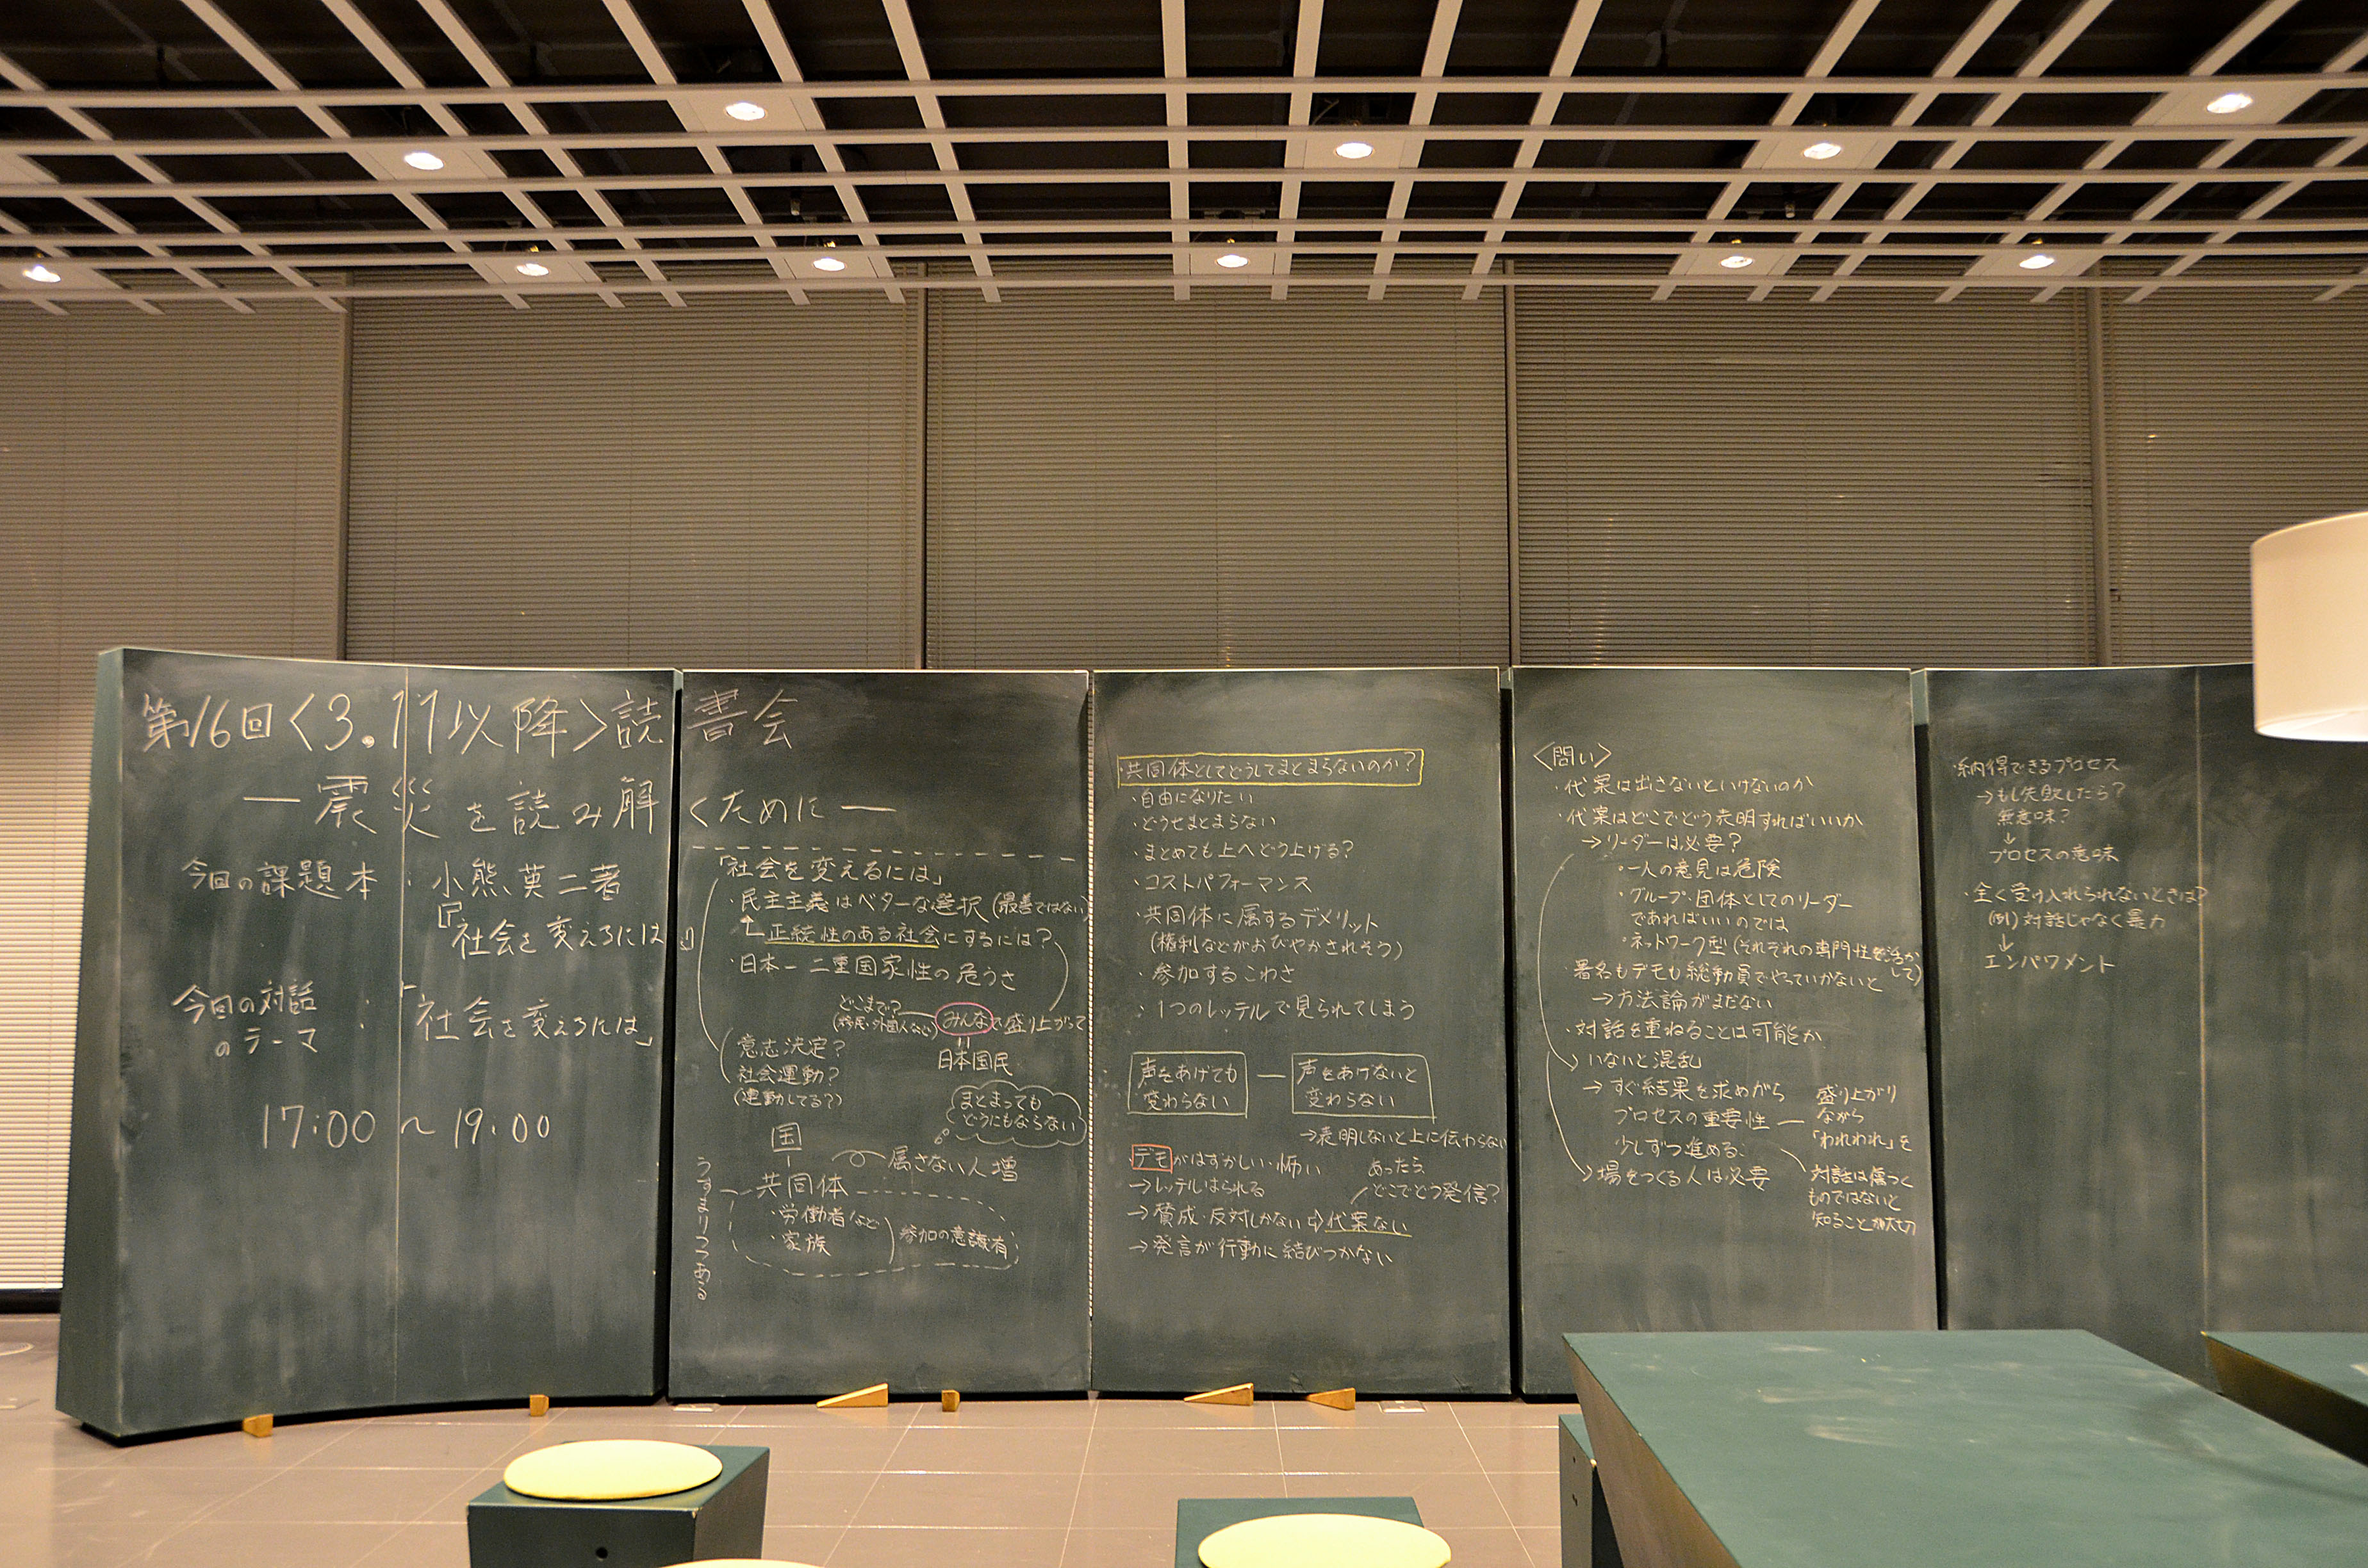 第16回〈3.11以降〉読書会
―震災を読み解くために―
今回の課題本:小熊英二著
『社会を変えるには』
今回の対話
のテーマ
:「社会を変えるには」
17:00〜19:00
「社会を変えるには」
・民主主義はベターな選択(最善ではない)
正統性のある社会にするには?
・日本―二重国家性の危うさ
どこまで?
(移民・外国人など)
みんなで盛り上がって
日本国民
意志決定?
社会運動?
(運動してる?)
まとまっても
どうにもならない
国
属さない人増
共同体
・労働者など
・家族
参加の意識有
うすまりつつある
・共同体としてどうしてまとまらないのか?
・自由になりたい
・どうせまとまらない
・まとめても上へどう上げる?
・コストパフォーマンス
・共同体に属するデメリット
(権利などがおびやかされそう)
・参加するこわさ
・1つのレッテルで見られてしまう
・声をあげても
変わらない
―
声をあげないと
変わらない
→表明しないと上に伝わらない
・デモがはずかしい・怖い
→レッテルはられる
→賛成・反対しかない⇨代案ない
あったら
どこでどう発信?
→発言が行動に結びつかない
〈問い〉
・代案は出さないといけないのか
・代案はどこでどう表明すればいいか
→リーダーは必要?
・一人の意見は危険
・グループ・団体としてのリーダー
であればいいのでは
・ネットワーク型(それぞれの専門性を活かして)
・署名もデモも総動員でやっていかないと
→方法論がまだない
・対話を重ねることは可能か
いないと混乱
→すぐ結果を求めがち
プロセスの重要性―
少しずつ進める
盛り上がり
ながら
「われわれ」を
場をつくる人は必要
対話は傷つく
ものではないと
知ることが大切
・納得できるプロセス
→もし失敗したら?
無意味?
↓
プロセスの意味
・全く受け入れられないときは?
(例)対話じゃなく暴力
↓
エンパワメント